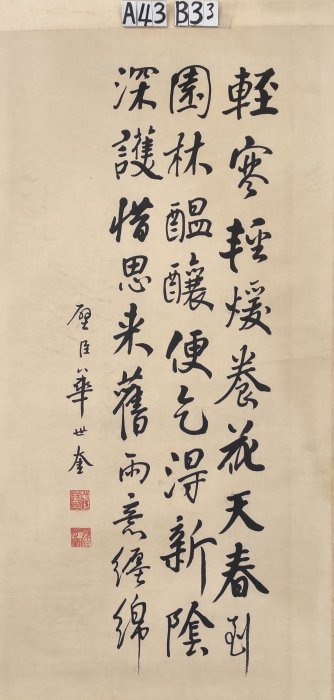 A43 B33
輕寒輕煖養花天春到
園林醖釀便乞得新陰
深護惜思来舊雨意纏綿
壁臣華世奎